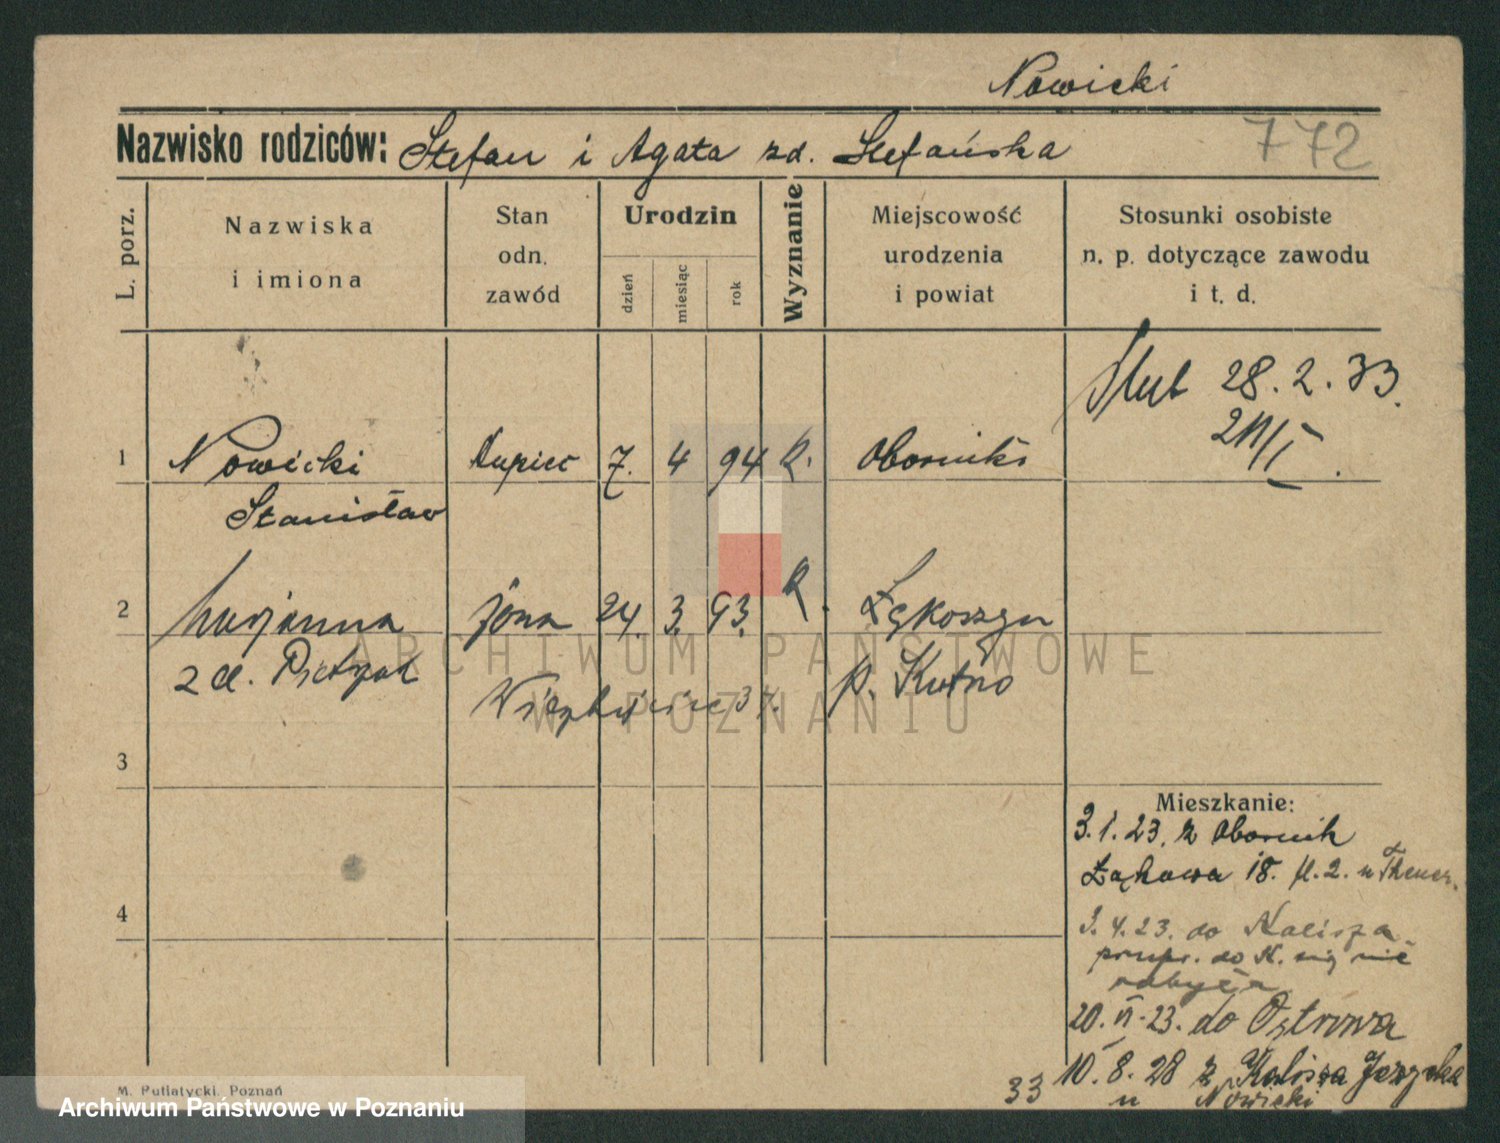 Nowicki
Nazwisko rodziców: Stefan i Agata zd. Stefańska
772
L. porz.
Nazwiska
i imiona
Stan
odn.
zawód
Urodzin
dzień
miesiąc
rok
Wyznanie
Miejscowość
urodzenia
i powiat
Stosunki osobiste
n. p. dotyczące zawodu
i t. d.
Ślub 28.2.33.
1 Nowicki kupiec 7. 4 94 k. Oborniki
Stanisław
2 Marjanna żona 24. 3. 93. k. Łękoszyn
zd. Pietrzak p. Kutno
3
4
Mieszkanie:
3.1.23. z Obornik
Łąkowa 18. II. 2. u
3.4.23. do Kalisza
do K. się nie
20.VI.23. do Ostrowa
10.8.28 z Kalisza
33 u Nowicki
M. Putiatycki, Poznań
ARCHIWUM PAŃSTWOWE
W POZNANIU
Archiwum Państwowe w Poznaniu